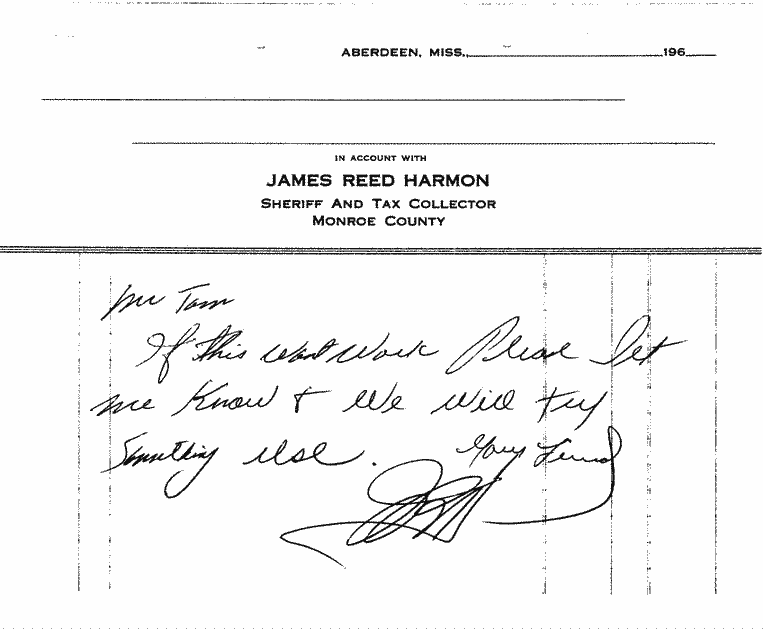 ABERDEEN, MISS., 196
IN ACCOUNT WITH
JAMES REED HARMON
SHERIFF AND TAX COLLECTOR
MONROE COUNTY
Mr Tom
If this wont work Please let
me know + we will try
Something else. Your Friend